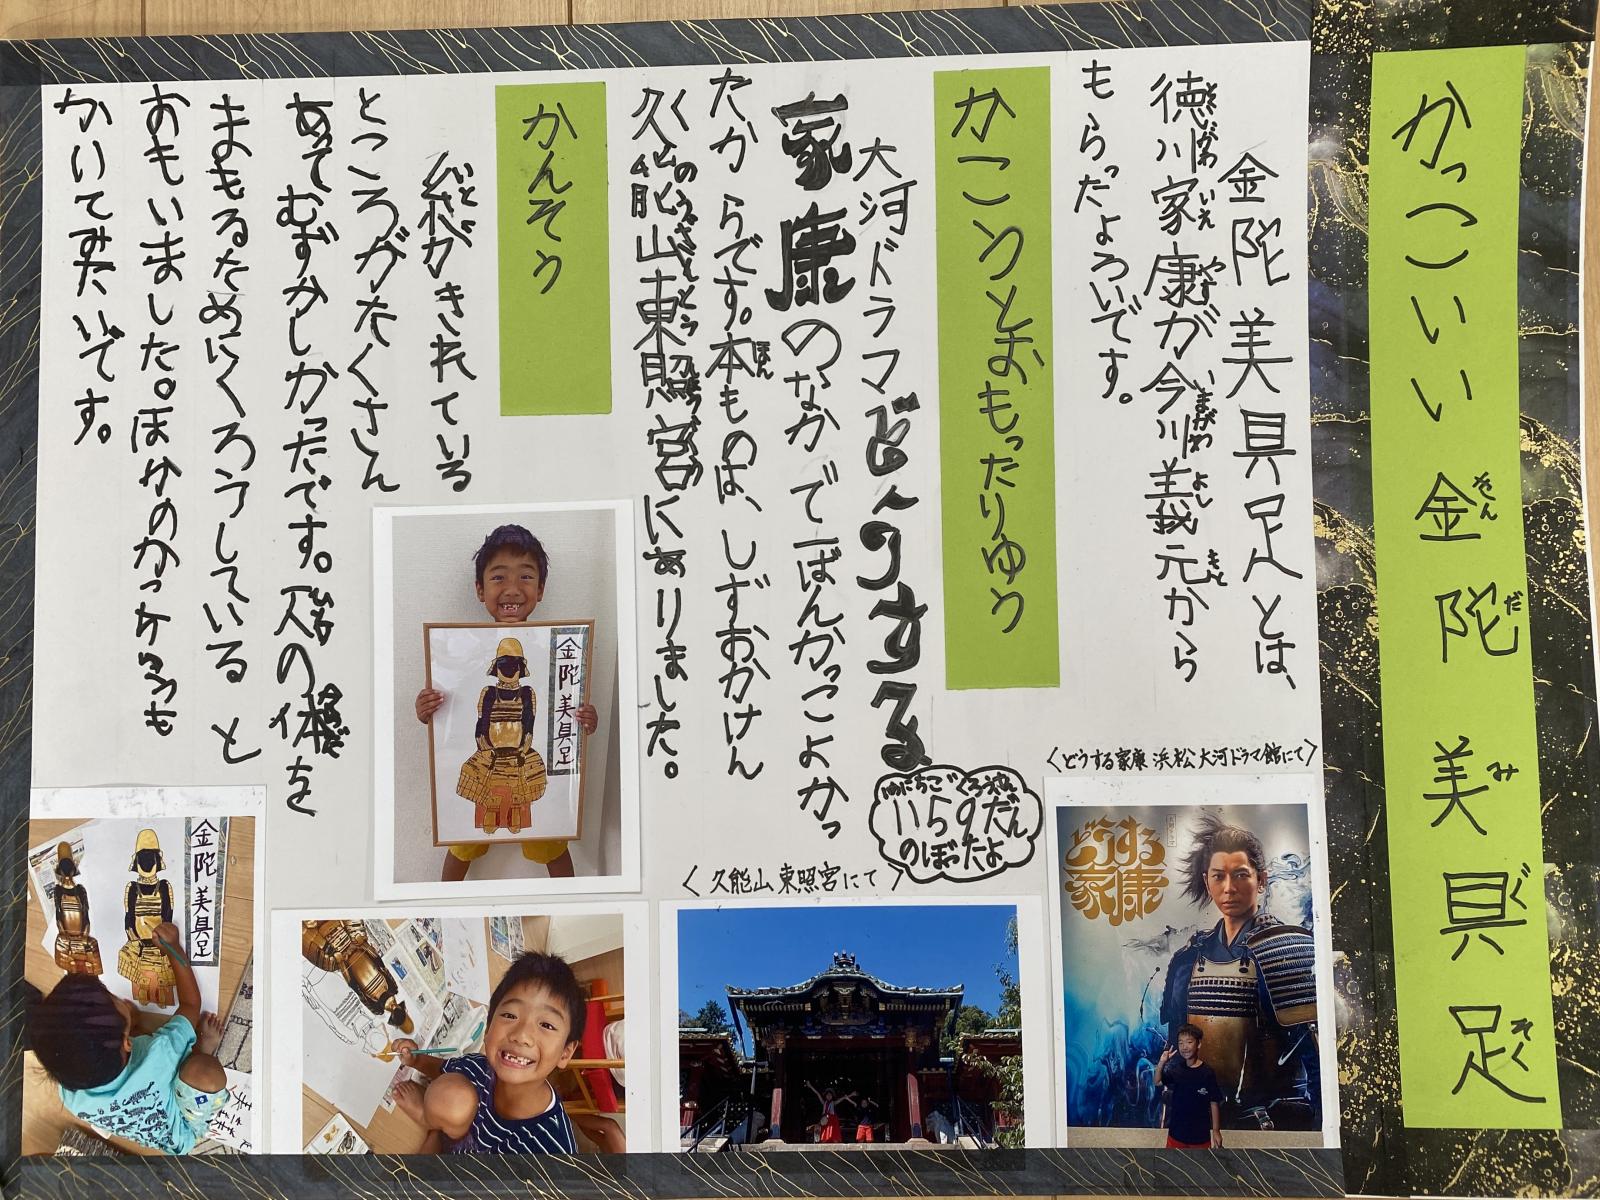 かっこいい金陀美具足
きん だ み ぐ そく
金陀美具足とは、
徳川家康が今川義元から
とくがわ いえ やす いまがわ よし もと
もらったよろいです。
かこうとおもったりゆう
大河ドラマどうする
家康のなかで一ばんかっこよかっ
たからです。本ものは、しずおかけん
ほん
久能山東照宮にありました。
くのうざんとうしょうぐう
いちいちごくろうさん
1159だん
のぼったよ
かんそう
糸がきれている
いと
ところがたくさん
あってむずかしかったです。人の体を
ひと からだ
まもるためにくろうしていると
おもいました。ほかのかっちゅうも
かいてみたいです。
〈どうする家康 浜松 大河ドラマ館にて〉
どうする
家康
〈久能山東照宮にて〉
金陀美具足
金陀美具足